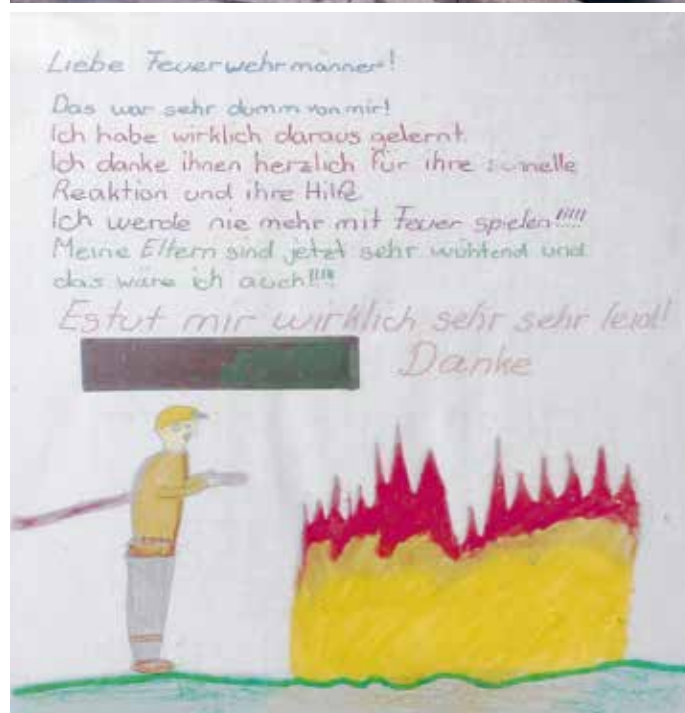 Liebe Feuerwehrmänner!
Das war sehr dumm von mir!
Ich habe wirklich daraus gelernt.
Ich danke ihnen herzlich für ihre schnelle
Reaktion und ihre Hilfe
Ich werde nie mehr mit Feuer spielen!!!!!
Meine Eltern sind jetzt sehr wühtend und
das wäre ich auch!!!!!
Es tut mir wirklich sehr sehr leid!
Danke